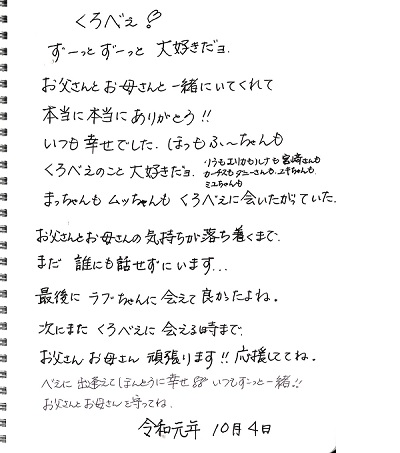 くろべえ!
ずーっとずーっと 大好きだョ.
お父さんとお母さんと一緒にいてくれて
本当に本当にありがとう!!
いつも幸せでした. ほっもふ〜ちゃんも
くろべえのこと 大好きだョ. りうもエリカもルナも宮崎さんも
カーチスもダニーさんも.ユキちゃんも.
ミエちゃんも
まっちゃんも ムッちゃんも くろべえに会いたがっていた.
お父さんとお母さんの気持ちが落ち着くまで.
まだ 誰にも話せずにいます...
最後に ラブちゃんに会えて良かったよね.
次にまた くろべえに 会える時まで.
お父さん お母さん 頑張ります!! 応援しててね.
べえに 出逢えてほんとうに幸せ いつもずーっと一緒!!
お父さんとお母さんを守ってね.
令和元年 10月4日